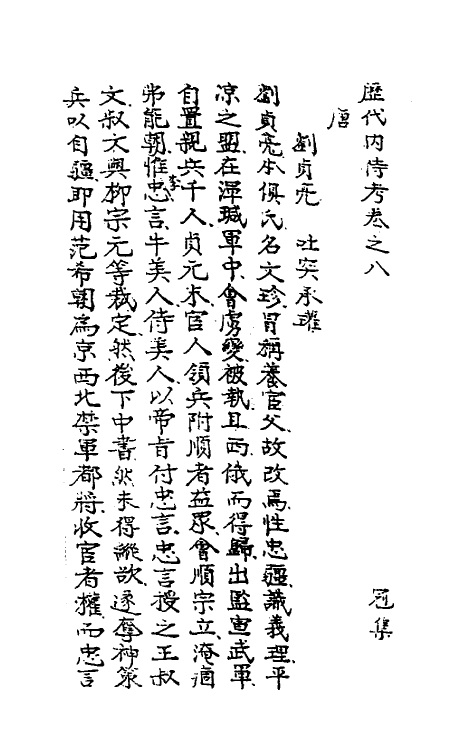 歷代內侍考卷之八 冠集
唐
劉貞亮 吐突承璀
劉貞亮本俱氏名文珍冒稱養宦父故改焉性忠疆識義理平
凉之盟在渾瑊軍中會虜變被執且西俄而得歸出監宣武軍
自置親兵千人貞元末宦人領兵附順者益眾會順宗立淹痼
弗能朝惟李忠言牛美人侍美人以帝旨付忠言忠言授之王叔
文叔文與柳宗元等裁定然後下中書然未得縱欲遂奪神策
兵以自疆即用范希朝為京西北禁軍都將收宦者權而忠言